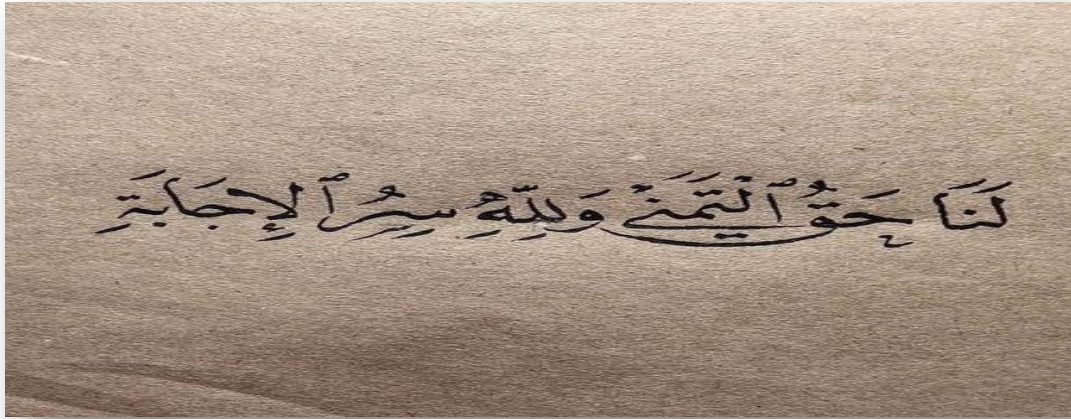 لَنَا حَقُّ ٱلْتَمَنَّي وَلِلّهِ سِرُّ ٱلإِجَابَةِ